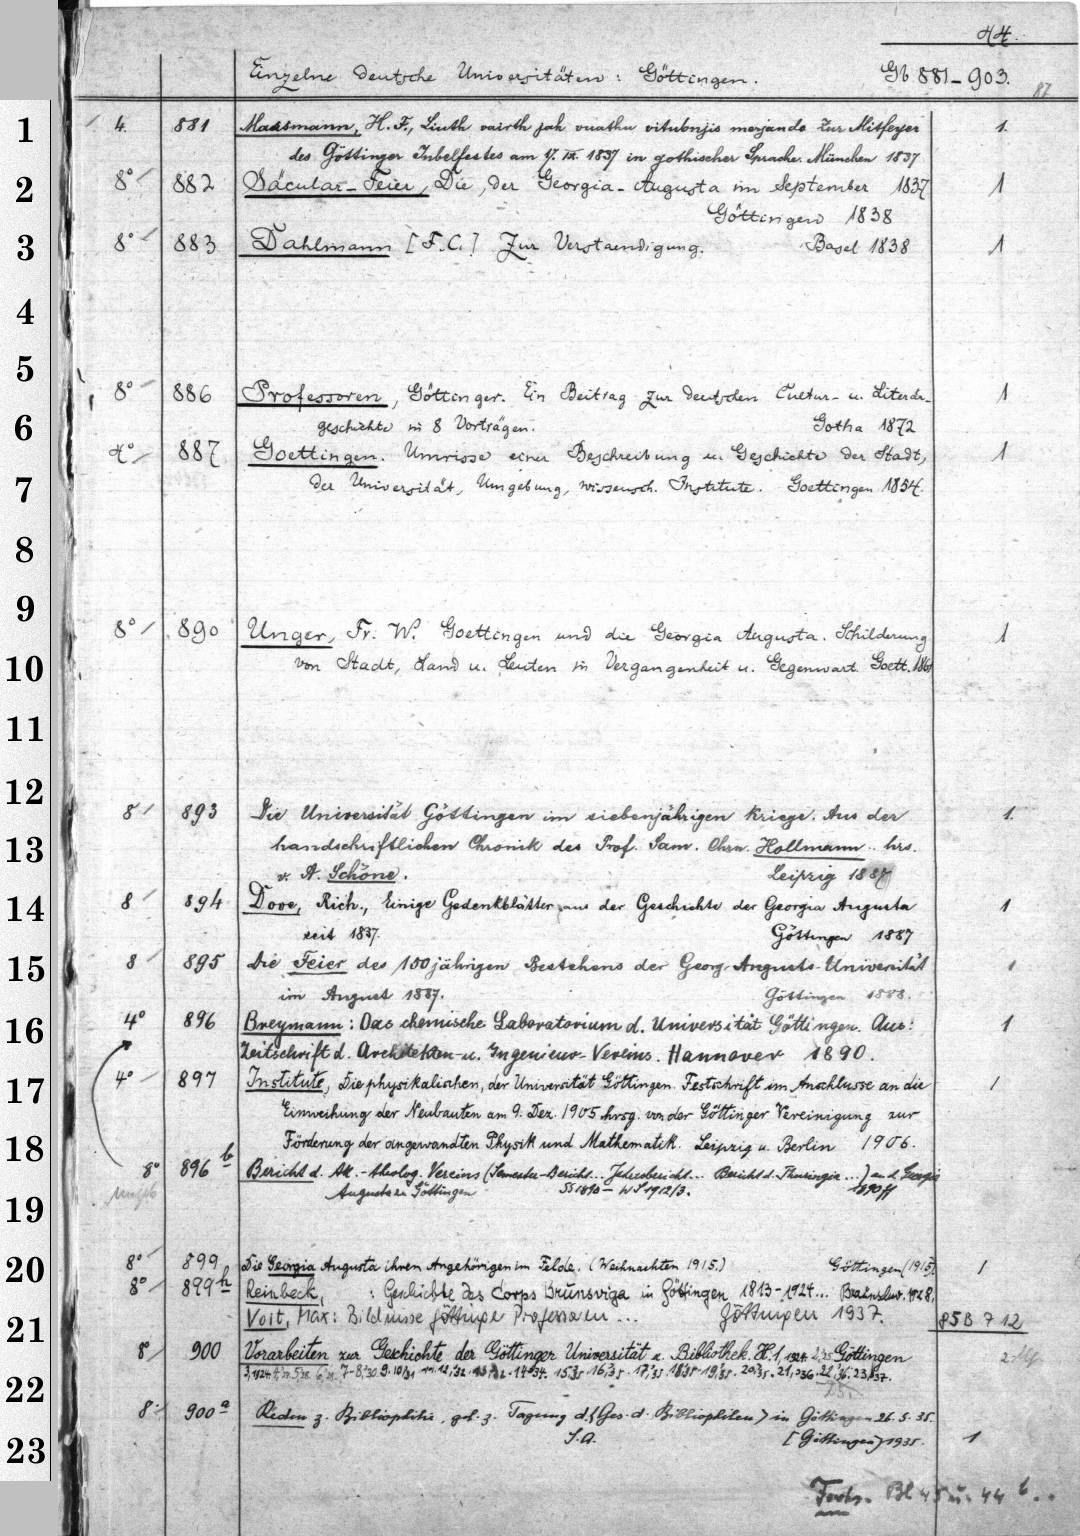 44.
Einzelne deutsche Universitäten: Göttingen. Gb 881-903.
87
1 4. 881 Massmann, H. F., Liuth vairth jah vuathu vitubnjis merjando. Zur Mitfeyer 1.
des Göttinger Jubelfestes am 17. IX. 1837 in gothischer Sprache. München 1837
2 8° 882 Säcular-Feier, Die, der Georgia-Augusta im September 1837 1
Göttingen 1838
3 8° 883 Dahlmann [F.C.] Zur Verstaendigung. Basel 1838 1
4
5
8° 886 Professoren, Göttinger. Ein Beitrag zur deutschen Cultur- u. Literär- 1
6 geschichte in 8 Vorträgen. Gotha 1872
4° 887 Goettingen. Umrisse einer Beschreibung u. Geschichte der Stadt, 1
7 der Universität, Umgebung, wissensch. Institute. Goettingen 1854.
8
9
8° 890 Unger, Fr. W. Goettingen und die Georgia Augusta. Schilderung 1
10 von Stadt, Land u. Leuten in Vergangenheit u. Gegenwart. Goett. 1861
11
12
8 893 Die Universität Göttingen im siebenjährigen Kriege. Aus der 1.
13 handschriftlichen Chronik des Prof. Sam. Chrn. Hollmann hrs.
v. A. Schöne. Leipzig 1887
14 8 894 Dove, Rich., Einige Gedenkblätter aus der Geschichte der Georgia Augusta 1
seit 1837. Göttingen 1887
15 8 895 Die Feier des 150jährigen Bestehens der Georg-Augusts-Universität 1
im August 1887. Göttingen 1888.
16 4° 896 Breymann: Das chemische Laboratorium d. Universität Göttingen. Aus: 1
Zeitschrift d. Architekten- u. Ingenieur-Vereins. Hannover 1890.
17 4° 897 Institute, Die physikalischen, der Universität Göttingen. Festschrift im Anschlusse an die 1
Einweihung der Neubauten am 9. Dez. 1905 hrsg. von der Göttinger Vereinigung zur
18 Förderung der angewandten Physik und Mathematik. Leipzig u. Berlin 1906.
8° 896 b Bericht d. Ak.-theolog. Vereins (Semester-Bericht... Jahresbericht... Bericht d. Thuringia ...) an d. Georgia
Augusta zu Göttingen SS 1890 - WS 1912/3. 1890 ff
19
20 8° 899 Die Georgia Augusta ihren Angehörigen im Felde. (Weihnachten 1915.) Göttingen (1915). 1
8° 899 h Reinbeck, : Geschichte des Corps Brunsviga in Göttingen 1813-1924... 1928.
21 Voit, Max: Bildnisse Göttinger Professoren ... Göttingen 1937. 85 B 712
8 900 Vorarbeiten zur Geschichte der Göttinger Universität u. Bibliothek. H. 1, 1924 Göttingen
22
8° 900 a Reden z. Bibliophilie, geh. z. Tagung d. (Ges. d. Bibliophilen) in Göttingen 26. 5. 35.
23 S.A. [Göttingen] 1935. 1
Forts. Bl 45 u. 44 b..